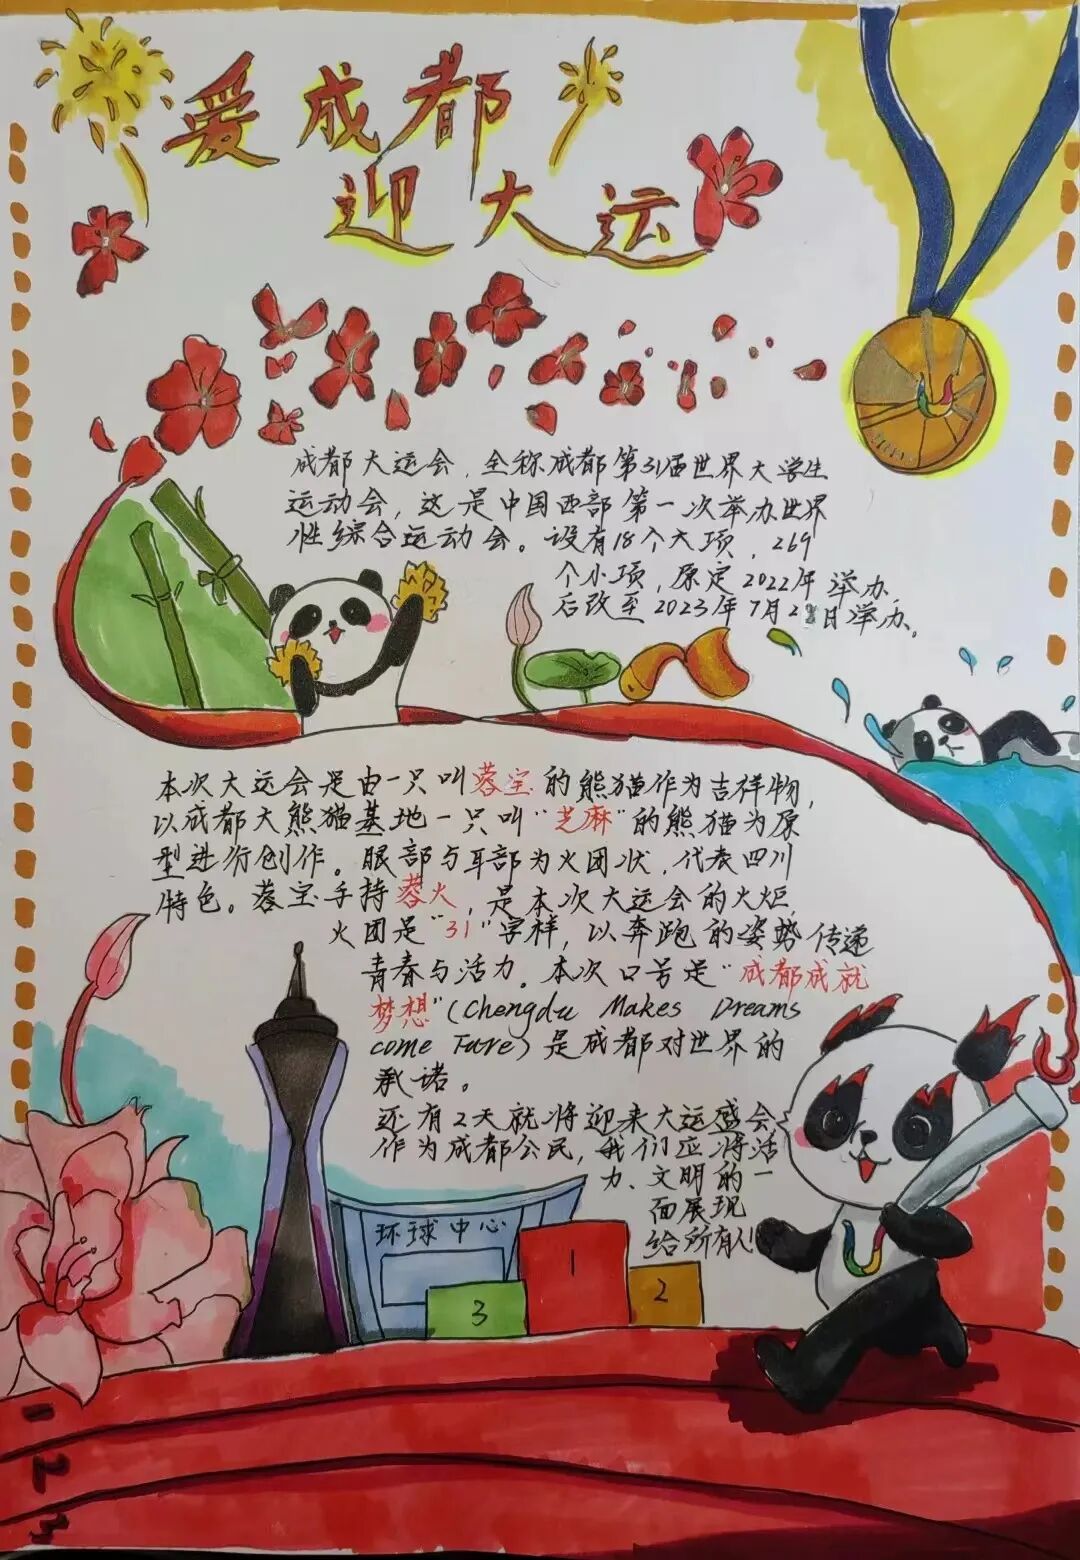 爱成都
迎大运
成都大运会，全称成都第31届世界大学生
运动会，这是中国西部第一次举办世界
性综合运动会。设有18个大项，269
个小项，原定2022年举办，
后改至2023年7月28日举办。
本次大运会是由一只叫蓉宝的熊猫作为吉祥物，
以成都大熊猫基地一只叫"芝麻"的熊猫为原
型进行创作。眼部与耳部为火团状，代表四川
特色。蓉宝手持蓉火，是本次大运会的火炬，
火团是"31"字样，以奔跑的姿势传递
青春与活力。本次口号是"成都成就
梦想"(Chengdu Makes Dreams
come Ture)是成都对世界的
承诺。
还有2天就将迎来大运盛会，
作为成都公民，我们应将活
力、文明的一
面展现
给所有人！
环球中心
1
2
3